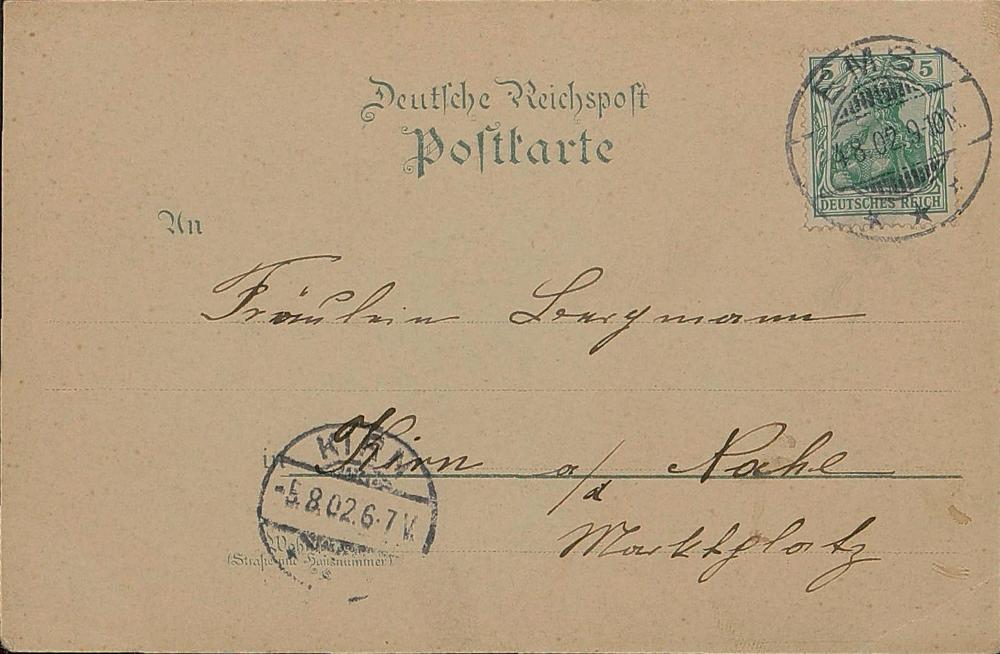 Deutsche Reichspost
Postkarte
EMS
5 5
4.8.02.9-10
DEUTSCHES REICH
An
Fräulein Bergmann
in Kirn a/d Nahe
KIRN
-5.8.02.6-7V.
Marktplatz
(Straße und Hausnummer)